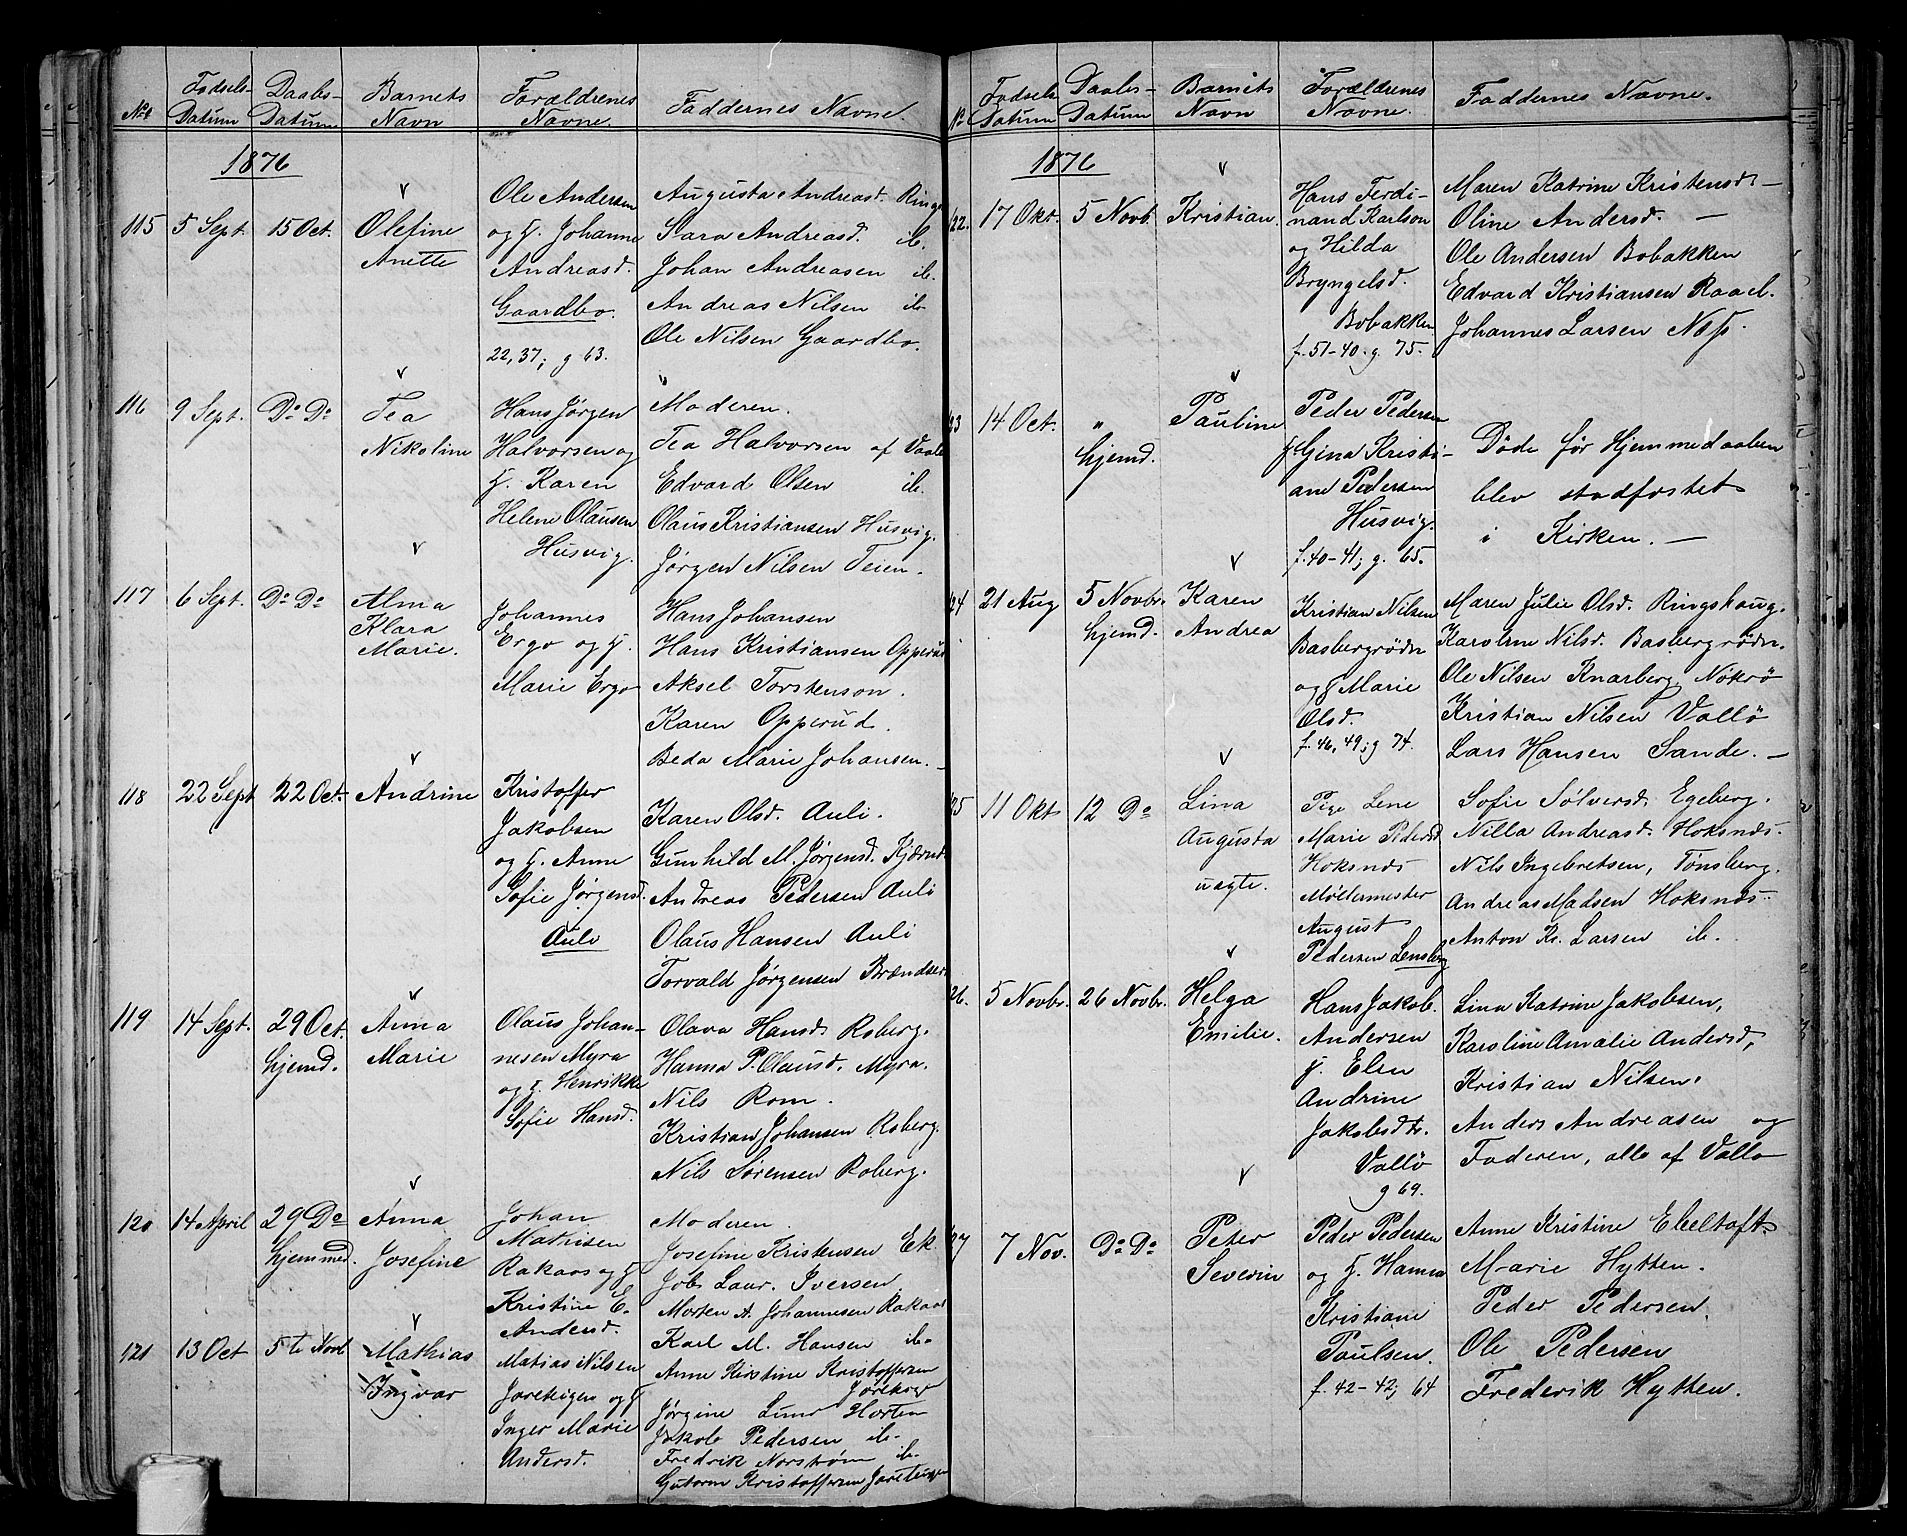 No Fødsels Datum Daabs- Datum Barnets Navn Forældrenes Navne. Faddernes Navne.
1876
115 5 Sept. 15 Oct. Olefine Anette
Ole Andersen
og H. Johanne
Andreasd.
Gaardbo.
22, 37; g 63.
Augusta Andreasd. Rings
Sara Andreasd. ib.
Johan Andreasen ib.
Andreas Nilsen ib
Ole Nilsen Gaardbo.
116 9 Sept. Do Do Tea
Nikoline
Hans Jørgen
Halvorsen og
H. Karen
Helene Olausen
Husvig.
Moderen.
Tea Halvorsen af Vaale
Edvard Olsen ib.
Olaus Kristiansen Husvig.
Jørgen Nilsen Teien.
117 6 Sept. Do Do Alma
Klara
Marie.
Johannes
Ergo og H.
Marie Ergo
Hans Johansen
Hans Kristiansen Opperud
Aksel Torstenson.
Karen Opperud.
Beda Marie Johansen.
118 22 Sept 22 Oct. Andrine
Kristoffer
Jakobsen
og H. Anne
Sofie Jørgensd.
Auli
Karen Olsd. Auli.
Gunhild M. Jørgensd.
Andreas Pedersen Auli
Olaus Hansen Auli
Torvald Jørgensen
119 14 Sept. 29 Oct. hjemd. Anna
Marie
Olaus Johan-
nesen Myra
og H. Henrikke
Sofie Hansd.
Olava Hansd. Roberg.
Hanna P. Olausd. Myra.
Nils Rom.
Kristian Johansen Roberg.
Nils Sørensen Roberg.
120 14 April 29 Do hjemmed. Anna
Josefine
Johan
Mathisen
Rakaas og H
Kristine E.
Andersd.
Moderen.
Josefine Kristensen Ek
Job Laur. Iversen
Morten A. Johannesen Rakaas
Karl M. Hansen ib.
121 13 Oct 5te Novb Mathias
Ingvar
Matias Nilsen
og H
Inger Marie
Andersd.
Anne Kirstine Kristoffersen
Jørgine Lund Horten
Jakob Pedersen ib.
Fredrik Norstrøm ib.
Gutorm Kristoffersen
No Fødsels Datum Daabs- Datum Barnets Navn Forældrenes Navne. Faddernes Navne.
1876
22. 17 Okt. 5 Novb. Kristian.
Hans Ferdi-
nand Karlson
og Hilda
Bryngelsd.
Bobakken
f. 51-40. g. 75.
Maren Katrine Kristensd.
Oline Andersd. —
Ole Andersen Bobakken
Edvard Kristiansen Raael.
Johannes Larsen Næs.
23 14 Oct. " hjemd. Pauline
Peder Pedersen
H Gina Kristi-
ane Pedersen
Husvig.
f. 40-41; g. 65.
Døde før Hjemmedaaben
blev stadfæstet
i Kirken. —
24 21 Aug 5 Novbr. hjemd. Karen
Andrea
Kristian Nilsen
Basbergrødn
og H Marie
Olsd.
f. 46, 49; g 74.
Maren Julie Olsd. Ringshaug.
Karoline Nilsd. Basbergrødn.
Ole Nilsen Knarberg, Nøtrø
Kristian Nilsen Vallø
Lars Hansen Sande. —
25 11 Okt 12 Do Lina
Augusta
uægte.
Pige Lene
Marie Pedersd
Hoksnæs
Møllermester
August
Pedersen Lensberg
Sofie Sølversd. Egeberg.
Nilla Andreasd. Hoksnæs.
Nils Ingebretsen, Tønsberg.
Andreas Madsen Hoksnæs.
Anton Kr. Larsen ib.
26. 5 Novbr. 26 Novbr. Helga
Emilie.
Hans Jakob
Andersen
H. Elen
Andrine
Jakobsdtr.
Vallø
g 69.
Lina Katrine Jakobsen,
Karoline Amalie Andersd,
Kristian Nilsen.
Anders Andreasen og
Faderen, alle af Vallø
27 7 Nov. Do Do Peter
Severin
Peder Pedersen
og H. Hanna
Kristiane
Paulsen.
f. 42-42; 64
Anne Kristine Ebeltoft
Marie Hytten.
Peder Pedersen.
Ole Pedersen
Frederik Hytten.